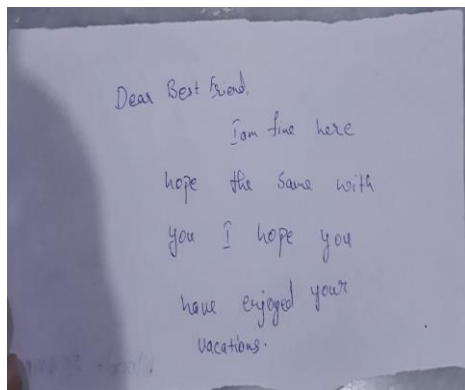 Dear Best Friend,
I am fine here
hope the same with
you I hope you
have enjoyed your
vacations.